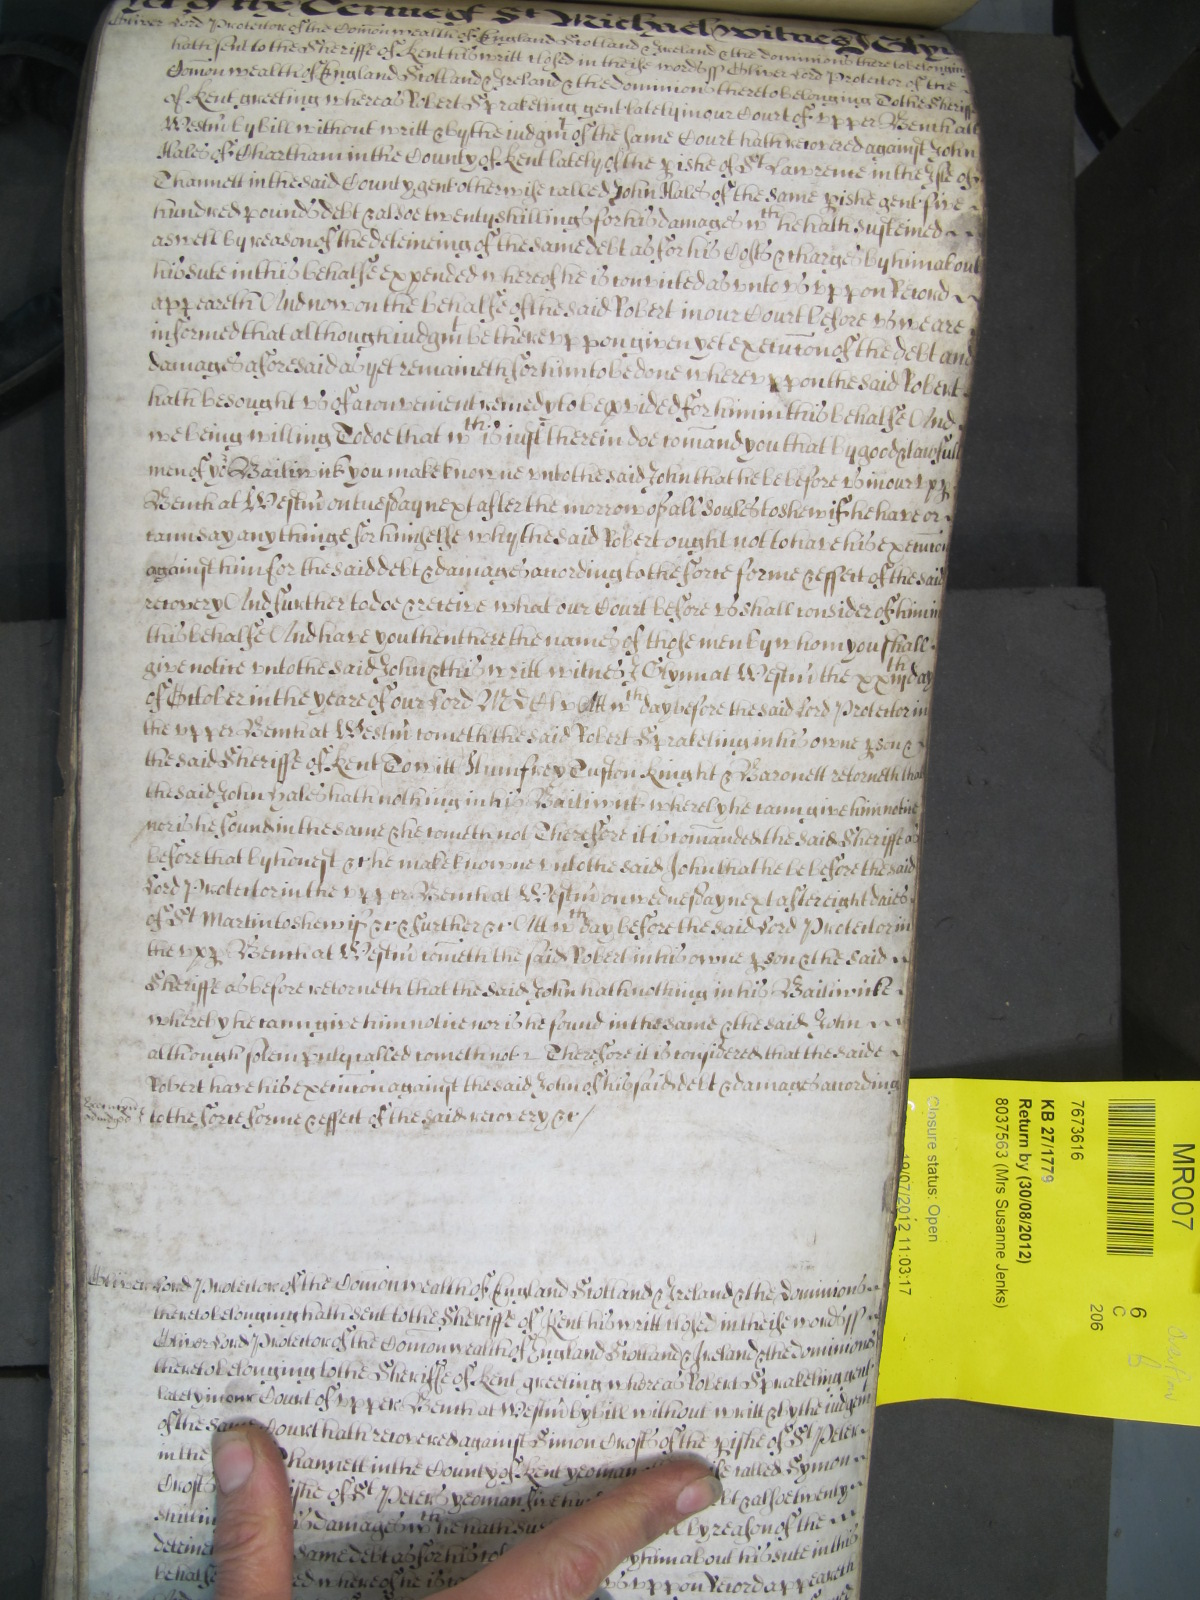 the Terme of St Michael witnes J Glyn
Oliver Lord Protector of the Comonwealth of England Scotland & Ireland & the dominions thereto belonging
hath sent to the Sheriffe of Kent his writt closed in theise words ss Oliver Lord Protector of the
Comonwealth of England Scotland & Ireland & the dominions thereto belonging To the Sheriffe
of Kent greeting whereas Robert Sprakeling gent lately in our Court of upper Bench att
Westm by bill without writt & by the judgmt of the same Court hath recovered against John
Hales of Chartham in the County of Kent lately of the pishe of St Lawrence in the Isle of
Thannett in the said County gent otherwise called John Hales of the same pishe gent five
hundred pounds debt & alsoe twenty shillings for his damages wth he hath susteined
aswell by reason of the deteineing of the same debt as for his Costs & charges by him about
his sute in this behalfe expended whereof he is convicted as unto us uppon Record
appeareth And now on the behalfe of the said Robert in our Court before us we are
informed that although judgmt be thereuppon given yet execucon of the debt and
damages aforesaid as yet remaineth for him to be done whereuppon the said Robert
hath besought us of a convenient remedy to be pvided for him in this behalfe And
we being willing To doe that wth is just therein doe comand you that by good & lawfull
men of yor Bailiwick you make knowne unto the said John that he be before us in our upp
Bench at Westm on tuesday next after the morrow of all soules to shew if he have or
cann say any thinge for himselfe why the said Robert ought not to have his execucon
against him for the said debt & damages according to the force forme & effect of the said
recovery And further to doe & receive what our Court before us shall consider of him in
this behalfe And have you then there the names of those men by whom you shall
give notice unto the said John & this writt witnes J Glynn at Westm the xxiiith day
of October in the yeare of our Lord MDCLvi Att wth day before the said Lord Protector in
the upper Bench at Westm cometh the said Robert Sprakeling in his owne pson &
the said Sheriffe of Kent To witt Humfrey Tufton knight & Baronett retorneth that
the said John Hales hath nothing in his Bailiwick whereby he cann give him notice
nor is he found in the same & he cometh not Therefore it is comanded the said Sheriffe as
before that by honest &c he make knowne unto the said John that he be before the said
Lord Protector in the upper Bench at Westm on wednesday next after eight daies
of St Martin to shew if &c & further &c Att wth day before the said Lord Protector in
the upp Bench at Westm cometh the said Robert in his owne pson & the said
Sheriffe as before retorneth that the said John hath nothing in his Bailiwicke
whereby he cann give him notice nor is he found in the same & the said John
although solempnly called cometh not Therefore it is considered that the saide
Robert have his execucon against the said John of his said debt & damages according
to the force forme & effect of the said recovery &c
Oliver Lord Protector of the Comonwealth of England Scotland & Ireland & the dominions
thereto belonging hath sent to the Sheriffe of Kent his writt closed in theise words ss
Oliver Lord Protector of the Comonwealth of England Scotland & Ireland & the dominions
thereto belonging to the Sheriffe of Kent greeting whereas Robert Sprakeling gent
lately in our Court of upper Bench at Westm by bill without writt & by the judgemt
of the same Court hath recovered against Simon Crosse of the pishe of St Peter
in the hannett in the County of Kent yeoman called Symon
Crosse pishe of St Peters yeoman five hun debt & alsoe twenty
shilling his damages wth he hath sus by reason of the
deteine same debt as for his cos by him about his sute in this
behalfe whereof he is us uppon Record appeareth
MR007
6
C
206
7673616
KB 27/1779
Return by (30/08/2012)
8037563 (Mrs Susanne Jenks)
Closure status: Open
19/07/2012 11:03:17